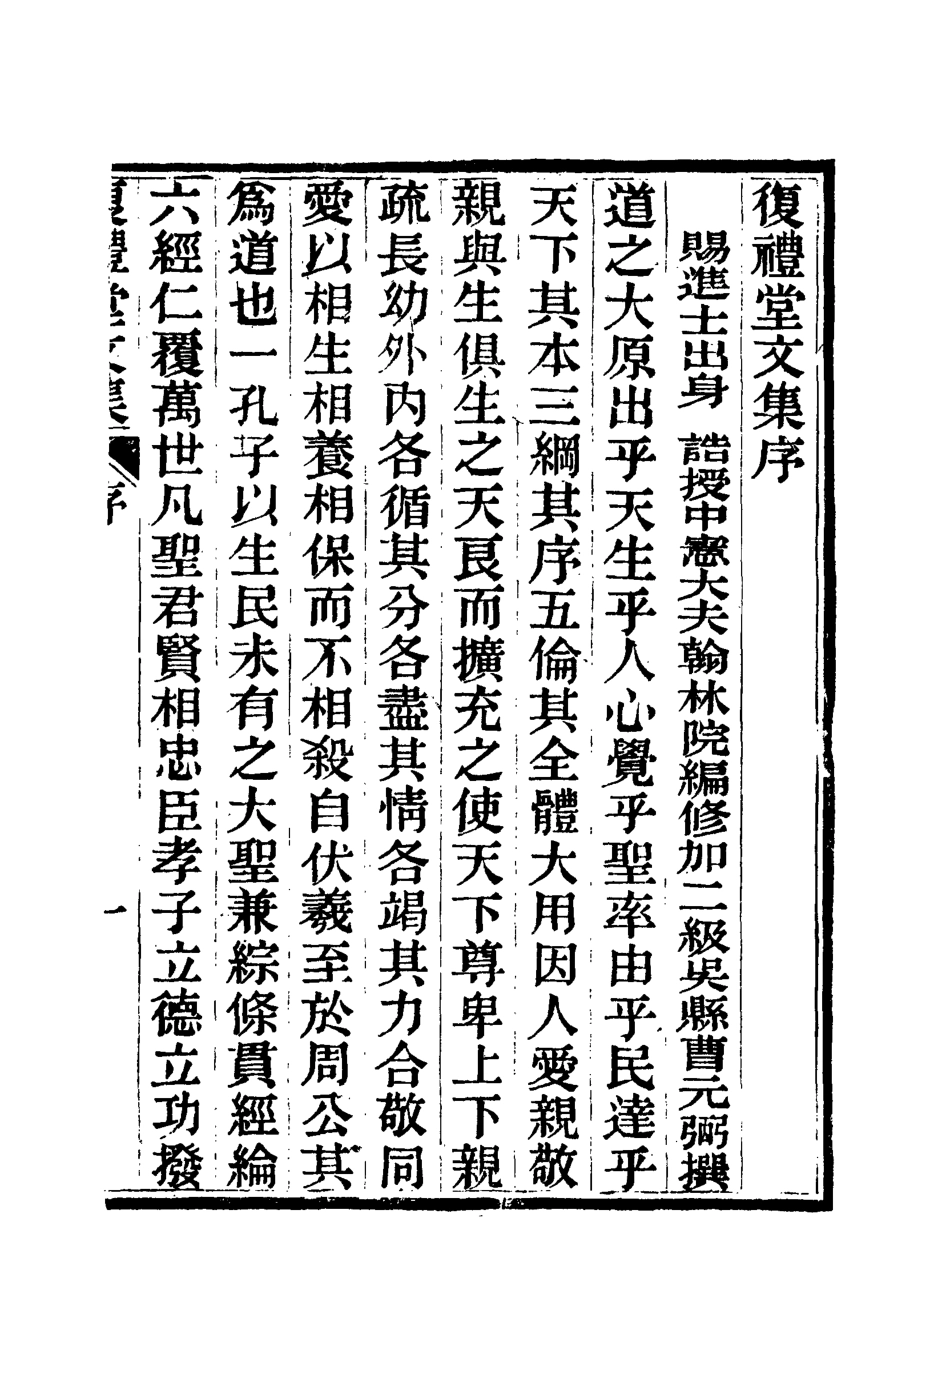 復禮堂文集序
賜進士出身 誥授中憲大夫翰林院編修加二級吳縣曹元弼撰
道之大原出乎天生乎人心覺乎聖率由乎民達乎
天下其本三綱其序五倫其全體大用因人愛親敬
親與生俱生之天良而擴充之使天下尊卑上下親
疏長幼外內各循其分各盡其情各竭其力合敬同
愛以相生相養相保而不相殺自伏羲至於周公其
爲道也一孔子以生民未有之大聖兼綜條貫經綸
六經仁覆萬世凡聖君賢相忠臣孝子立德立功撥
復禮堂文集 序 一